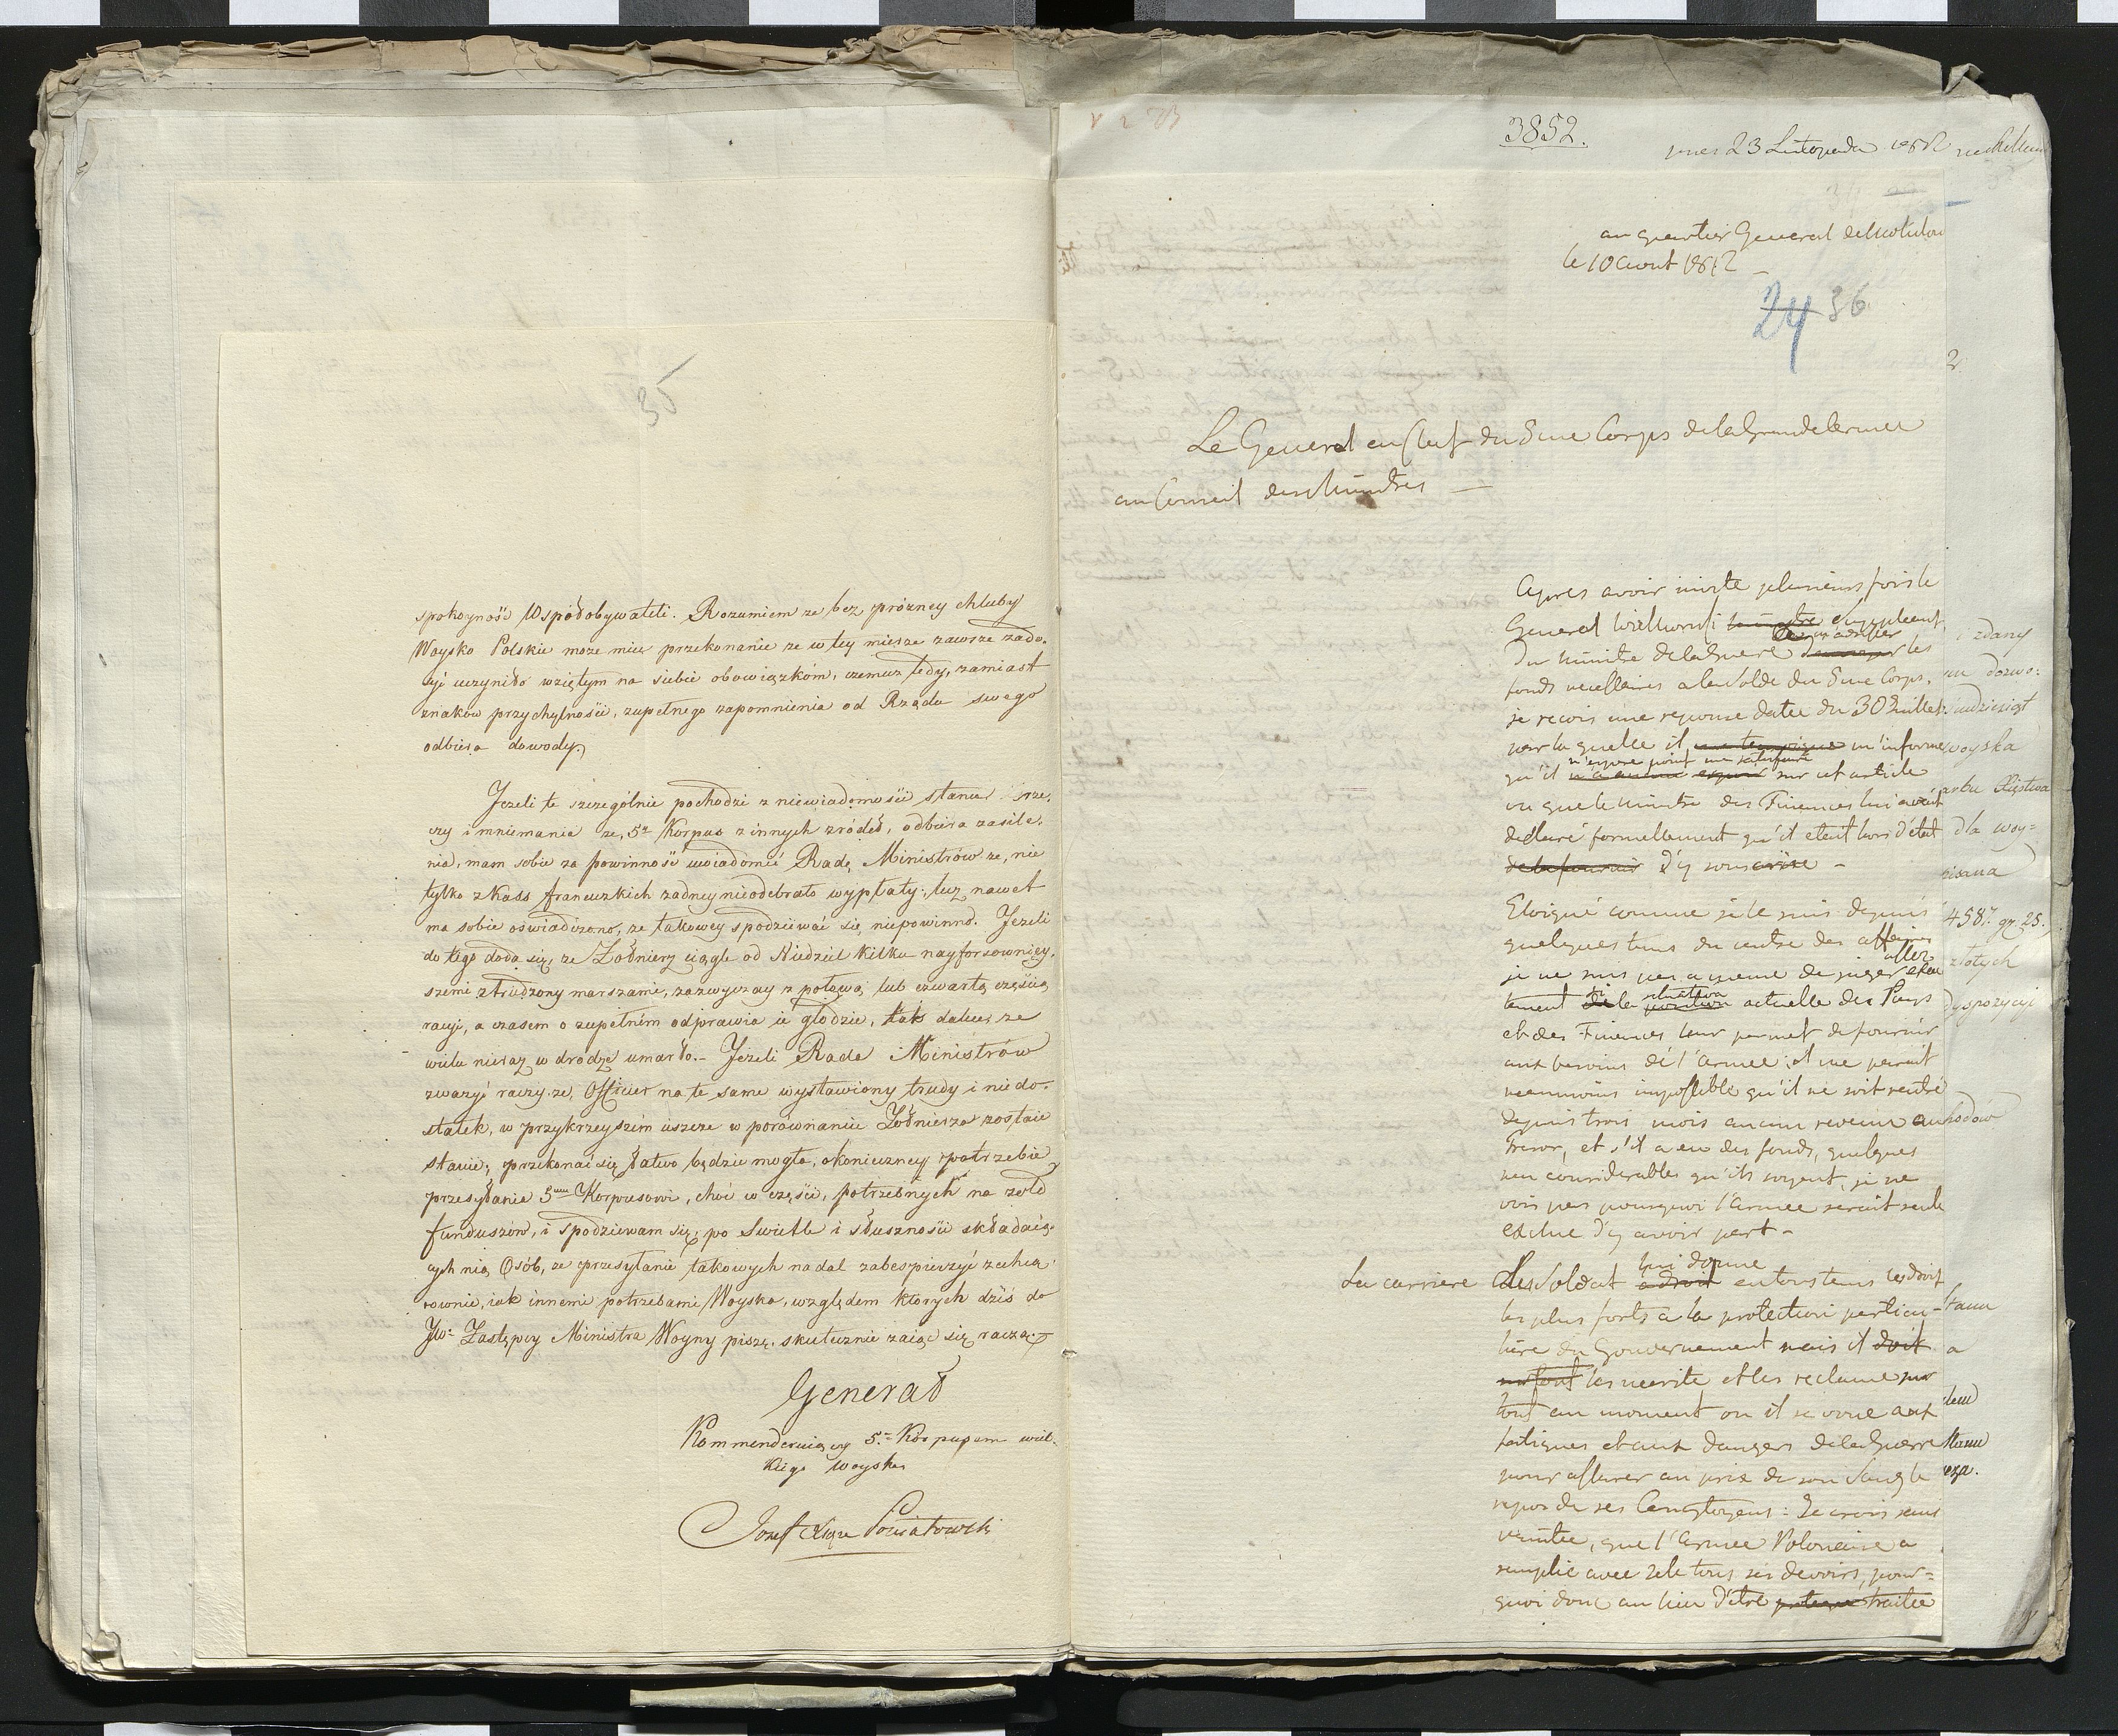 35
spokoyność Współobywateli. Rozumiem ze bez prózney chluby
Woysko Polskie moze mieć przekonanie ze w tey mierze zawsze zado-
syć uczyniło wziętym na siebie obowiązkóm, czemuz tedy, zamiast
znaków przychylności, zupełnego zapomnienia od Rządu swego
odbiera dowody.
Jezeli to szczególnie pochodzi z niewiadomości stanu rze-
czy i mniemania ze, 5ty Korpus z innych zródeł, odbiera zasile-
nia, mam sobie za powinność uwiadomić Radę Ministrów ze, nie
tylko z Kass francuzkich zadney nieodebrało wypłaty, lecz nawet
ma sobie oświadczono, ze takowey spodziewać się niepowinno. Jezeli
do tego doda się, ze Zołnierz ciągle od Niedziel kilku nayforsowniey-
szemi strudzony marszami, zazwyczay z połową lub czwartą częścią
racyi, a czasem o zupełném odprawia ie głodzie, tak dalece ze
wielu nieraz w drodze umarło. - Jezeli Rada Ministrów
zwazyć raczy ze, Officier na te same wystawiony trudy i niedo-
statek, w przykrzeyszém ieszcze w porównaniu Zołnierza zostaie
stanie, przekonać się łatwo będzie mogła, o konieczney potrzebie
przesyłania 5mu Korpusowi, choć w części, potrzebnych na zołd
funduszów, i spodziewam się, po świetle i słuszności składaią-
cych nią Osób, ze przesyłanie takowych nadal zabespieczyć zechcą
rownie, iak innemi potrzebami Woyska, względem których dziś do
JW: Zastępcy Ministra Woyny piszę, skutecznie zaiąć się raczą.
Generał
Kommenderuiący 5m Korpusem wiel-
kiego woyska
Jozef Xiąze Poniatowski
3852.
pres 23 Listopada 1812
au quartier General de
le 10 Aout 1812 -
24 36
Le General en Chef du 5me Corps de la Grande Armée
au Conseil des Ministres -
Apres avoir invité plusieurs fois le
General Wielhorski ministre suppleant
du Ministre de la Guerre de m'adresser les
fonds necessaires a la Solde du 5me Corps,
je recois une reponse datée du 30 Juillet
par la quelle il m'informe
qu'il n'espere point me satisfaire sur cet article
vu que le Ministre des Finances lui avoit
declaré formellement qu'il etait hors d'etat
de la fournir d'y souscrire -
Eloigné comme je le suis depuis
quelques tems du centre des affaires
je ne suis pas a meme de juger assez exac
tement si la position situation actuelle du Pays
et des Finances leur permet de fournir
aux besoins de l'armée; il me parait
neanmoins impossible qu'il ne soit rentré
depuis trois mois aucun revenu au
Tresor, et s'il a eu des fonds, quelques
peu considerables qu'ils soyent, je ne
vois pas pourquoi l'armée serait seule
exclue d'y avoir part -
La carriere du Soldat a droit lui donne en tous tems les droits
les plus forts a la protection particu-
liere du Gouvernement mais il doit
surtout les merite et les reclame sur
tout au moment ou il se voue aux
fatigues et aux dangers de la Guerre
pour assurer au prix de son Sang le
repos de ses Concitoyens: Je crois sans
vanité, que l'Armée Polonaise a
remplie avec zele tous ses devoirs, pour-
quoi donc au lieu d'être traitée
i zdany
dozwo:
woyska
Xięstwa
dla woy=
4587. gr 25.
złotych
dyspozycyi
a